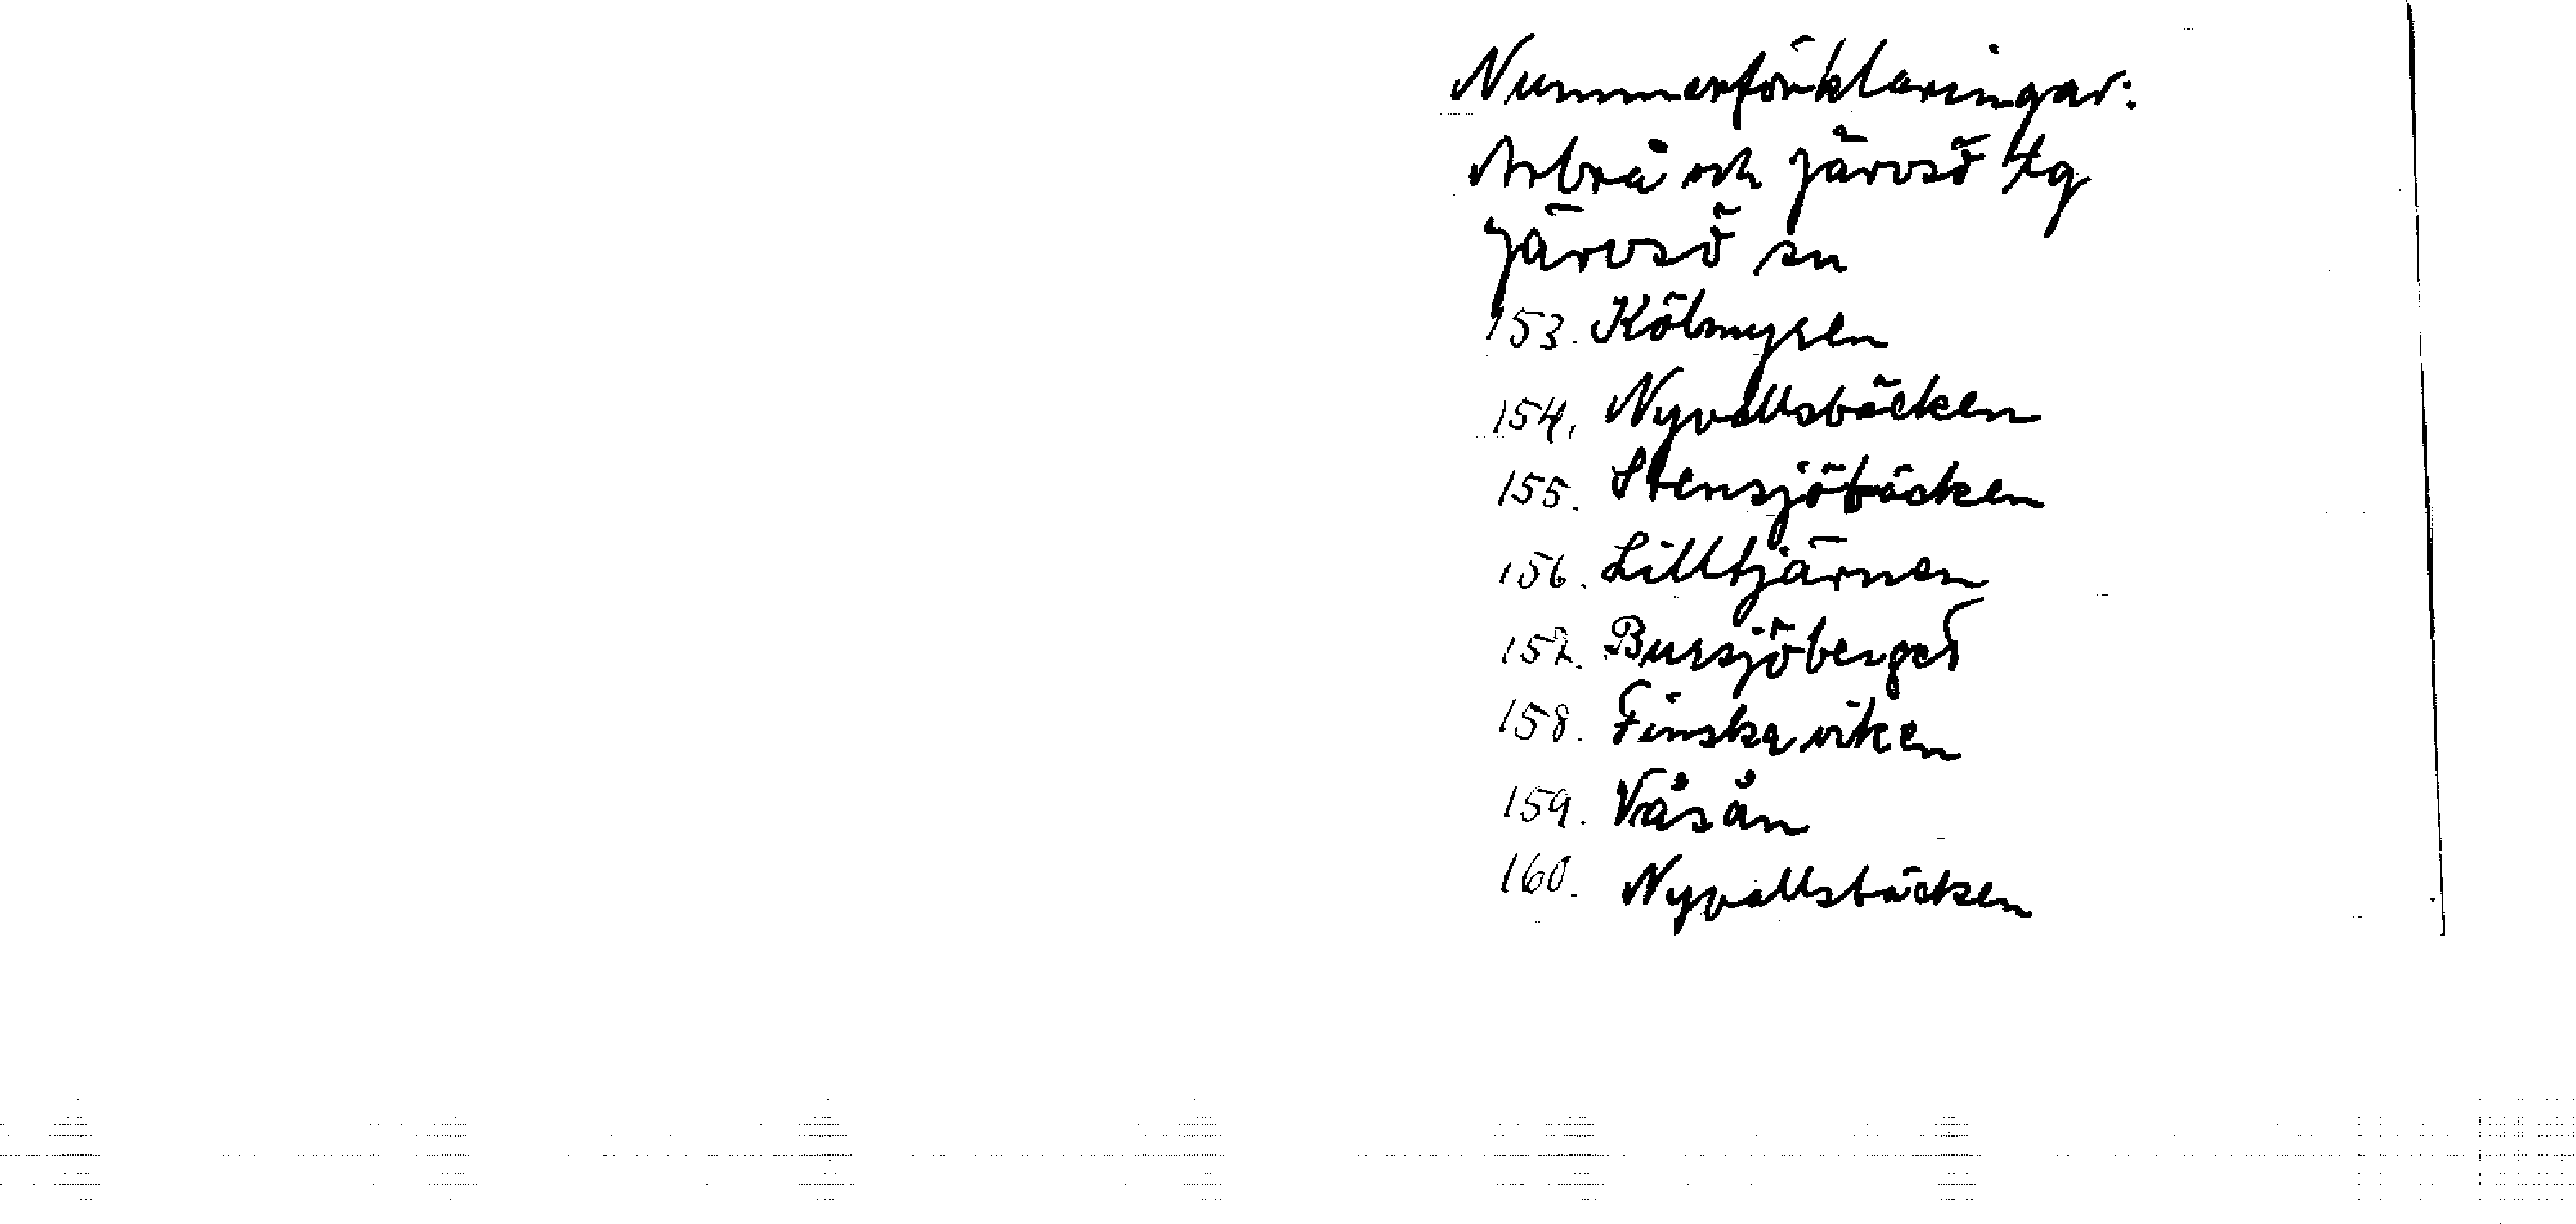 Nummerförklaringar:
Arbrå och Järvsö tg
Järvsö sn
153. Kölmyren
154. Nyvallsbäcken
155. Stensjöbäcken
156. Lilltjärnen
157. Bursjöberget
158. Finskaviken
159. Våsån
160. Nyvallsbäcken